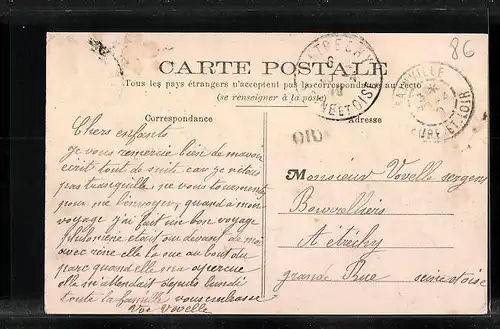 86
CARTE POSTALE
Tous les pays étrangers n'acceptent pas la correspondance au recto
(se renseigner à la poste)
Correspondance
Adresse
Chers enfants
Je vous remercie bien de mavoir
écrit tout de suite car je n'etais
pas tranquille ne vous tourmentez
pour me l'envoyer, quand a mon
voyage j'ai fait un bon voyage
philomène etait au devant de moi
avec elle la rue au bout du
parc quand elle ma aperçue
elle m'attendait depuis lundi
toute la famille vous embrasse
Vve Vovelle
ETRECHY
SEINE-ET-OISE
OR
EURE-ET-LOIR
Monsieur Vovelle sergent
Bourrelliers
A étréchy
grande Rue seine et oise